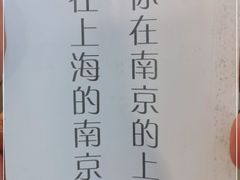 你在南京的上
在上海的南京